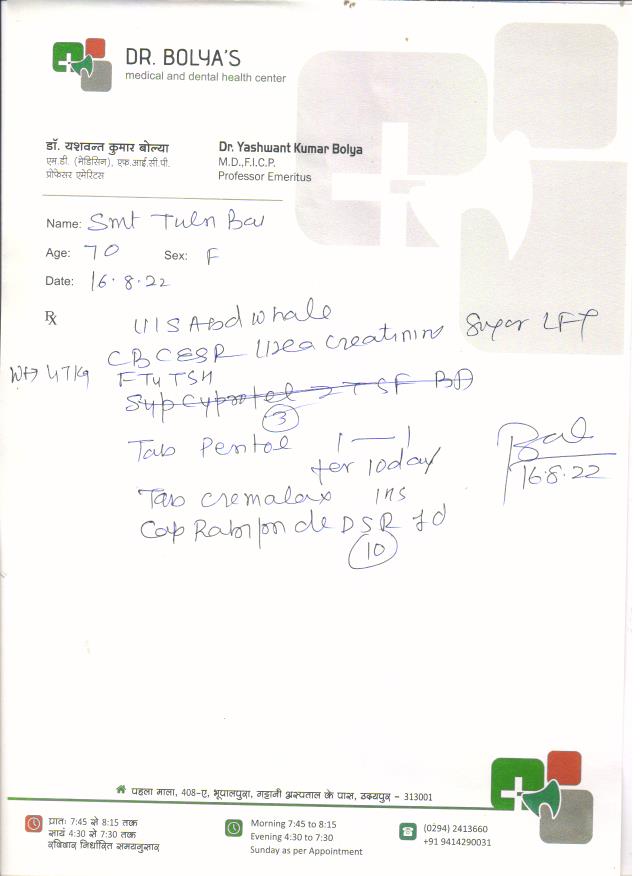 DR. BOLYA'S
medical and dental health center
डॉ. यशवन्त कुमार बोल्या
एम.डी. (मेडिसिन), एफ.आई.सी.पी.
प्रोफेसर एमेरिटस
Dr. Yashwant Kumar Bolya
M.D.,F.I.C.P.
Professor Emeritus
Name: Smt Tuln Bai
Age: 70 Sex: F
Date: 16.8.22
Rx
U/S Abd whole
CBC ESR Urea creatinine Sugar LFT
Wt→ 47kg FT4 TSH
Syp Cypontel 2 TSF BD
3
Tab Pentol 1—1
for 10 day
Tab cremalax 1HS
Cap DSR
10
16.8.22
पहला माला, 408-ए, भूपालपुरा, गट्टानी अस्पताल के पास, उदयपुर – 313001
प्रातः 7:45 से 8:15 तक
सायं 4:30 से 7:30 तक
रविवार निर्धारित समयनुसार
Morning 7:45 to 8:15
Evening 4:30 to 7:30
Sunday as per Appointment
(0294) 2413660
+91 9414290031